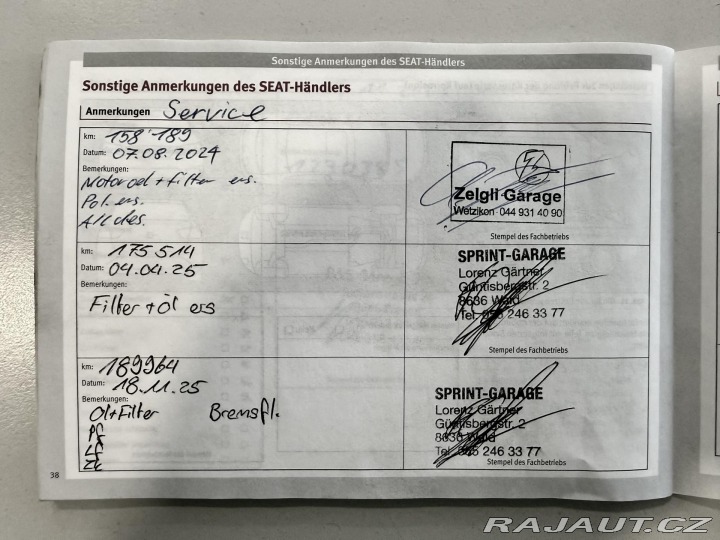 Sonstige Anmerkungen des SEAT-Händlers
Sonstige Anmerkungen des SEAT-Händlers
Anmerkungen Service
km: 158'189
Datum: 07.08.2024
Bemerkungen:
Motoroel + Filter ers.
Pol. ers.
Zelgli Garage
Wetzikon 044 931 40 90
Stempel des Fachbetriebs
km: 175.514
Datum: 04.04.25
Bemerkungen:
Filter + Öl ers
SPRINT-GARAGE
Lorenz Gärtner
Güntisbergstr. 2
8636 Wald
Tel. 055 246 33 77
Stempel des Fachbetriebs
km: 189964
Datum: 18.11.25
Bemerkungen:
Öl+Filter Bremsfl.
Pf
Lf
Zk
SPRINT-GARAGE
Lorenz Gärtner
Güntisbergstr. 2
8636 Wald
Tel. 055 246 33 77
Stempel des Fachbetriebs
38
RAJAUT.CZ